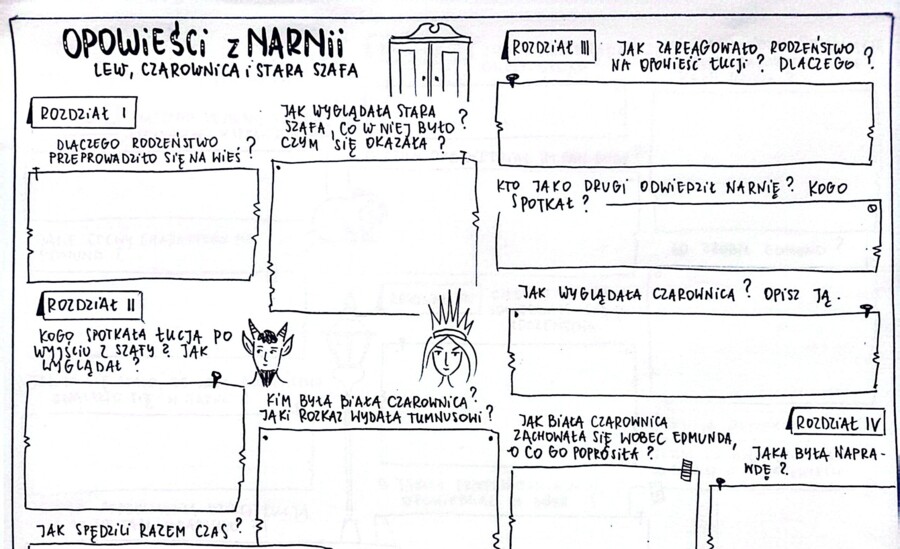 OPOWIEŚCI z NARNII
LEW, CZAROWNICA I STARA SZAFA
ROZDZIAŁ I
DLACZEGO RODZEŃSTWO
PRZEPROWADZIŁO SIĘ NA WIEŚ?
JAK WYGLĄDAŁA STARA
SZAFA, CO W NIEJ BYŁO?
CZYM SIĘ OKAZAŁA?
ROZDZIAŁ II
KOGO SPOTKAŁA ŁUCJA PO
WYJŚCIU Z SZAFY? JAK
WYGLĄDAŁ?
KIM BYŁA BIAŁA CZAROWNICA?
JAKI ROZKAZ WYDAŁA TUMNUSOWI?
JAK SPĘDZILI RAZEM CZAS?
ROZDZIAŁ III
JAK ZAREAGOWAŁO RODZEŃSTWO
NA OPOWIEŚĆ ŁUCJI? DLACZEGO?
KTO JAKO DRUGI ODWIEDZIŁ NARNIĘ? KOGO
SPOTKAŁ?
JAK WYGLĄDAŁA CZAROWNICA? OPISZ JĄ.
JAK BIAŁA CZAROWNICA
ZACHOWAŁA SIĘ WOBEC EDMUNDA,
O CO GO POPROSIŁA?
ROZDZIAŁ IV
JAKA BYŁA NAPRA-
WDĘ?